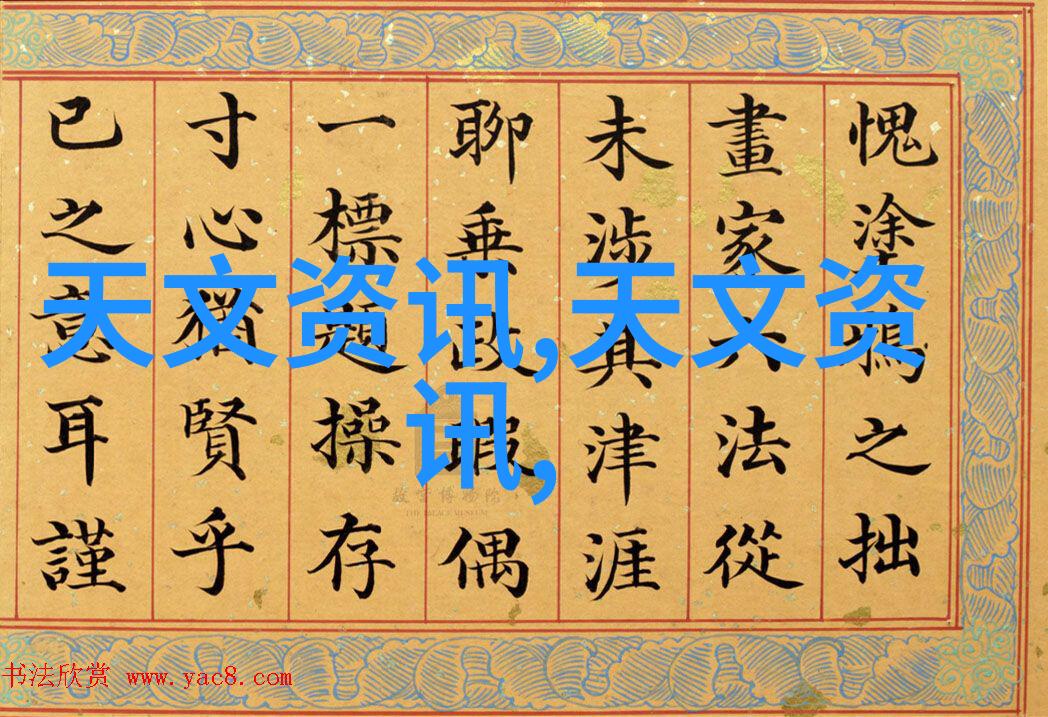 愧塗鴉之拙
畫家六法從
未涉其津涯
聊乗政暇偶
一標題操存
寸心猶賢乎
已之意耳謹
天文资讯,天文资
讯,
故宫博物院
THE PALACE MUSEUM
书法欣赏 www.yac8.com